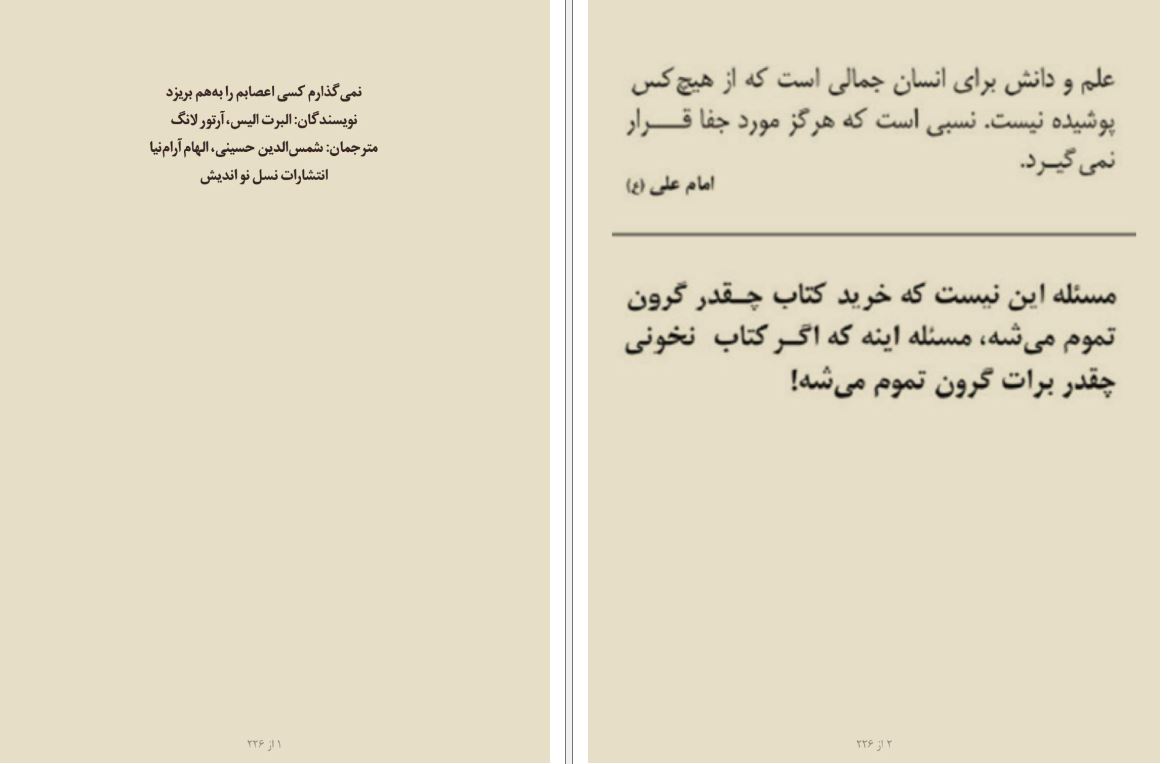 نمی‌گذارم کسی اعصابم را به‌هم بریزد
نویسندگان: البرت الیس، آرتور لانگ
مترجمان: شمس‌الدین حسینی، الهام آرام‌نیا
انتشارات نسل نو اندیش
۱ از ۲۲۶
علم و دانش برای انسان جمالی است که از هیچ‌کس
پوشیده نیست. نسبی است که هرگز مورد جفا قـــرار
نمی‌گیـرد.
امام علی (ع)
مسئله این نیست که خرید کتاب چـقدر گرون
تموم می‌شه، مسئله اینه که اگـر کتاب نخونی
چقدر برات گرون تموم می‌شه!
۲ از ۲۲۶